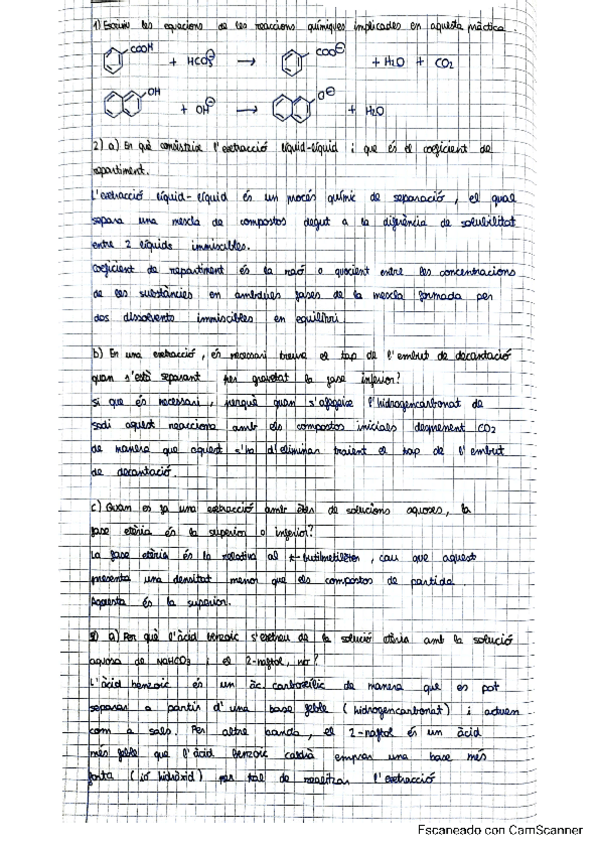 1) Escriu les equacions de les reaccions químiques implicades en aquesta pràctica.
COOH + HCO3⊖ → COO⊖ + H2O + CO2
OH + OH⊖ → O⊖ + H2O
2) a) En què consisteix l'extracció líquid-líquid i que és el coeficient de
repartiment.
L'extracció líquid-líquid és un procés químic de separació, el qual
separa una mescla de compostos degut a la diferència de solubilitat
entre 2 líquids immiscibles.
Coeficient de repartiment és la raó o quocient entre les concentracions
de les substàncies en ambdues fases de la mescla formada per
dos dissolvents immiscibles en equilibri
b) En una extracció, és necessari treure el tap de l'embut de decantació
quan s'està separant per gravetat la fase inferior?
Si que és necessari, perquè quan s'afegeix l'hidrogencarbonat de
sodi aquest reacciona amb els compostos inicials desprenent CO2
de manera que aquest s'ha d'eliminar traient el tap de l'embut
de decantació.
c) Quan es fa una extracció amb èter de solucions aquoses, la
fase etèria és la superior o inferior?
La fase etèria és la relativa al, cau que aquest
presenta una densitat menor que els compostos de partida.
Aquesta és la superior.
3) a) Per què l'àcid benzoic s'extreu de la solució etèria amb la solució
aquosa de NaHCO3 i el 2-naftol, no?
L'àcid benzoic és un àc. carboxílic de manera que es pot
separar a partir d'una base feble (hidrogencarbonat) i actuen
com a sals. Per altre banda, el 2-naftol és un àcid
més feble que l'àcid benzoic caldrà emprar una base més
forta (ió hidròxid) per tal de realitzar l'extracció
Escaneado con CamScanner